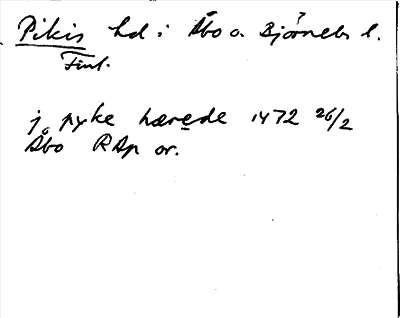 Pikis hd i Åbo o. Bjørneb. l.
Finl.
j pyke hærede 1472 26/2
Åbo RAp or.